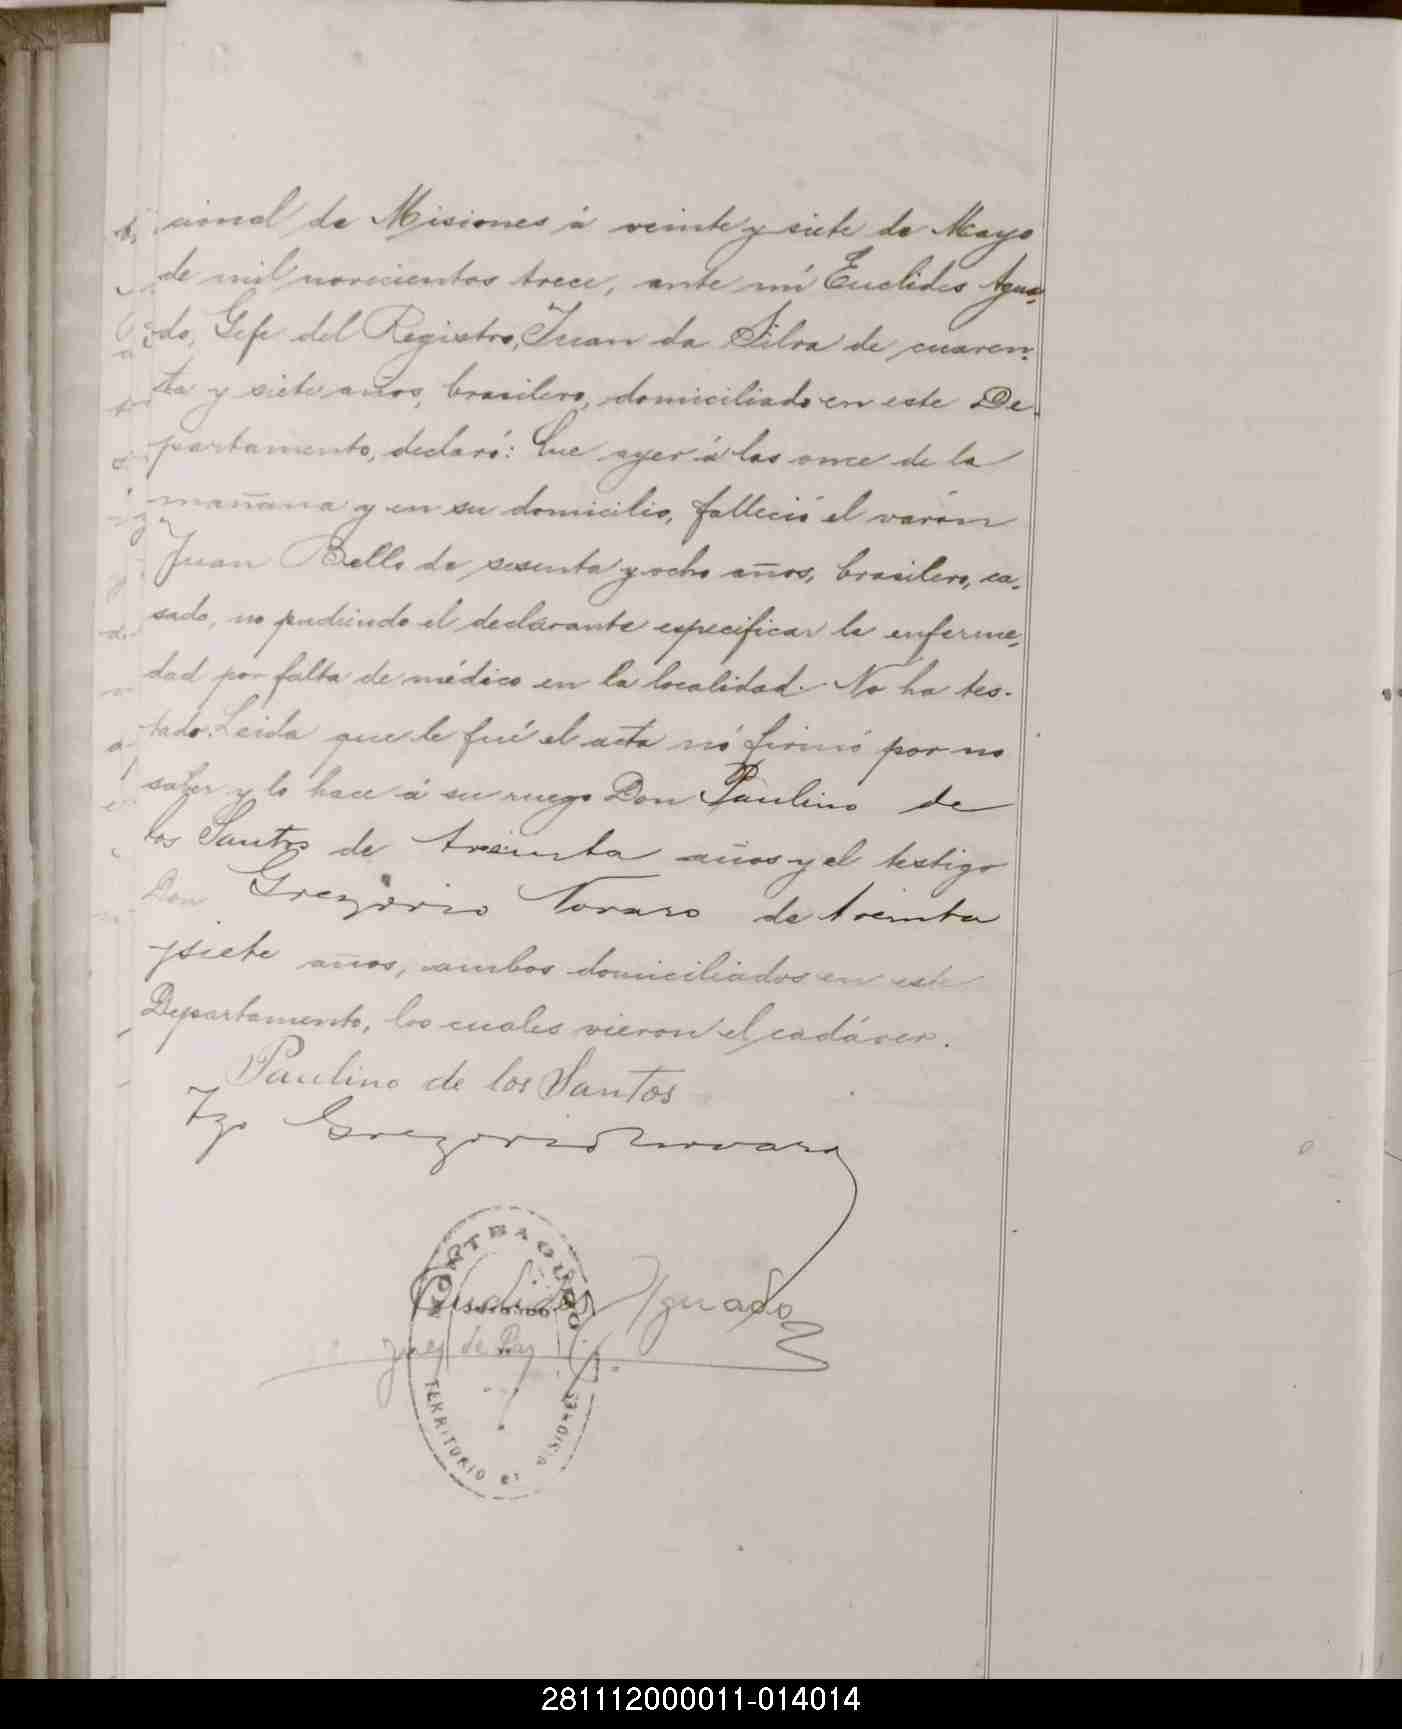 cional de Misiones á veinte y siete de Mayo
de mil novecientos trece, ante mí Euclides Agua-
do, Gefe del Registro, Juan da Silva de cuaren-
ta y siete años, brasilero, domiciliado en este De-
partamento, declaró: Que ayer á las once de la
mañana y en su domicilio, falleció el varón
Juan Bello de sesenta y ocho años, brasilero, ca-
sado, no pudiendo el declarante especificar la enferme-
dad por falta de médico en la localidad. No ha tes-
tado. Leida que le fué el acta nó firmó por no
saber y lo hace á su ruego Don Paulino de
los Santos de treinta años y el testigo
Don Gregorio Novaro de treinta
y siete años, ambos domiciliados en este
Departamento, los cuales vieron el cadáver.
Paulino de los Santos
Tgo Gregorio Novaro
MONTEAGUDO
Euclides Aguado
Juez de Paz
TERRITORIO DE MISIONES
281112000011-014014